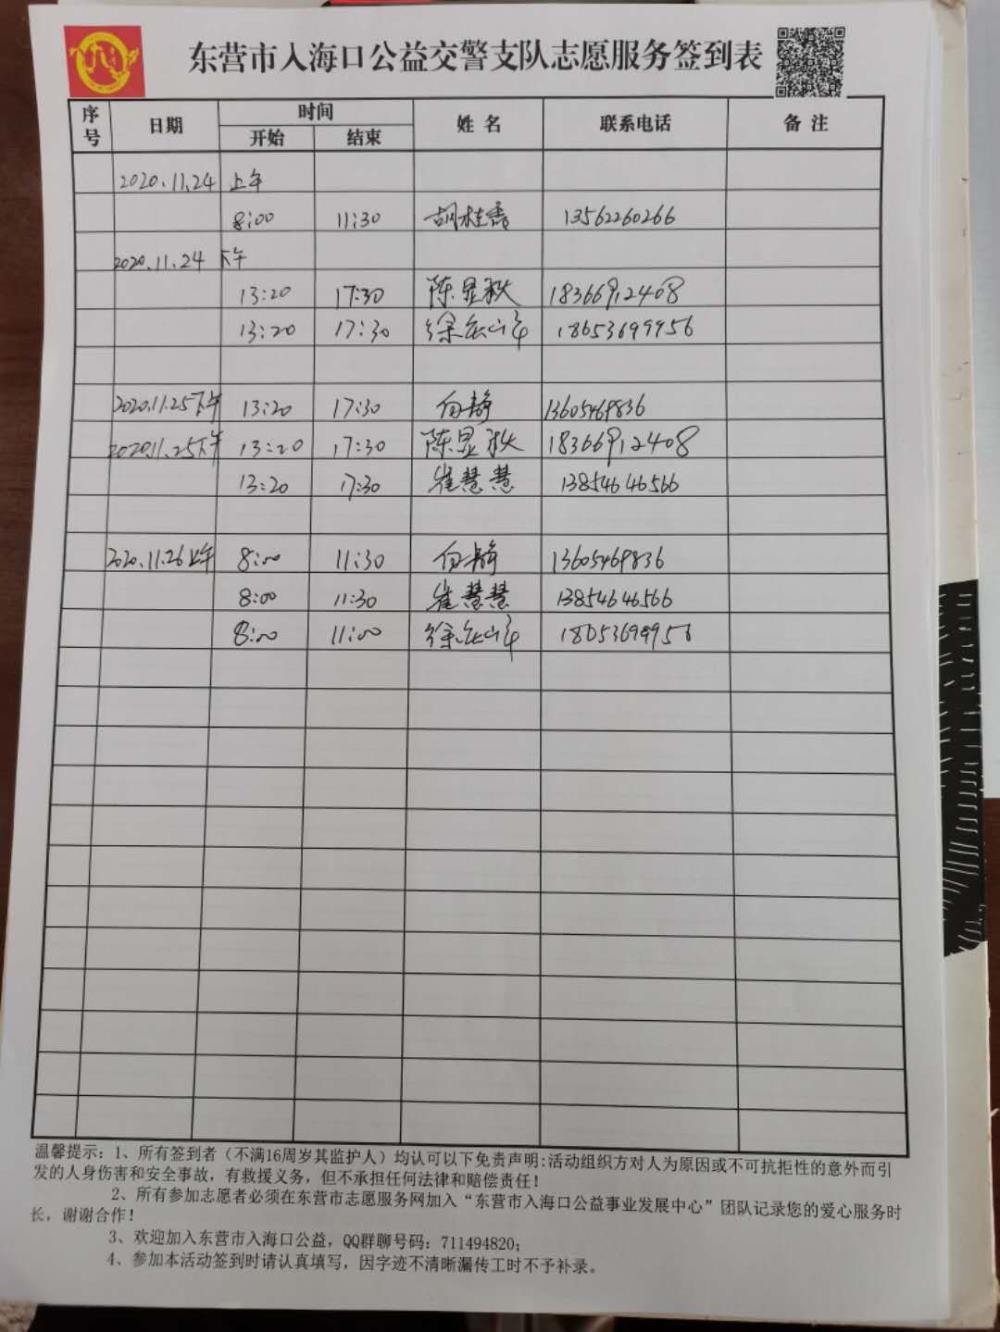 东营市入海口公益交警支队志愿服务签到表
序号 日期 时间 姓名 联系电话 备注
开始 结束
2020.11.24 上午
8:00 11:30 胡桂香 13562260266
2020.11.24 下午
13:20 17:30 陈显秋 18366912408
13:20 17:30 18653699956
2020.11.25下午 13:20 17:30 向静 13605469836
2020.11.25下午 13:20 17:30 陈显秋 18366912408
13:20 17:30 崔慧慧 13854646566
2020.11.26上午 8:00 11:30 向静 13605469836
8:00 11:30 崔慧慧 13854646566
8:00 11:00 18653699956
温馨提示：1、所有签到者（不满16周岁其监护人）均认可以下免责声明:活动组织方对人为原因或不可抗拒性的意外而引
发的人身伤害和安全事故，有救援义务，但不承担任何法律和赔偿责任！
2、所有参加志愿者必须在东营市志愿服务网加入“东营市入海口公益事业发展中心”团队记录您的爱心服务时
长，谢谢合作！
3、欢迎加入东营市入海口公益，QQ群聊号码：711494820；
4、参加本活动签到时请认真填写，因字迹不清晰漏传工时不予补录。